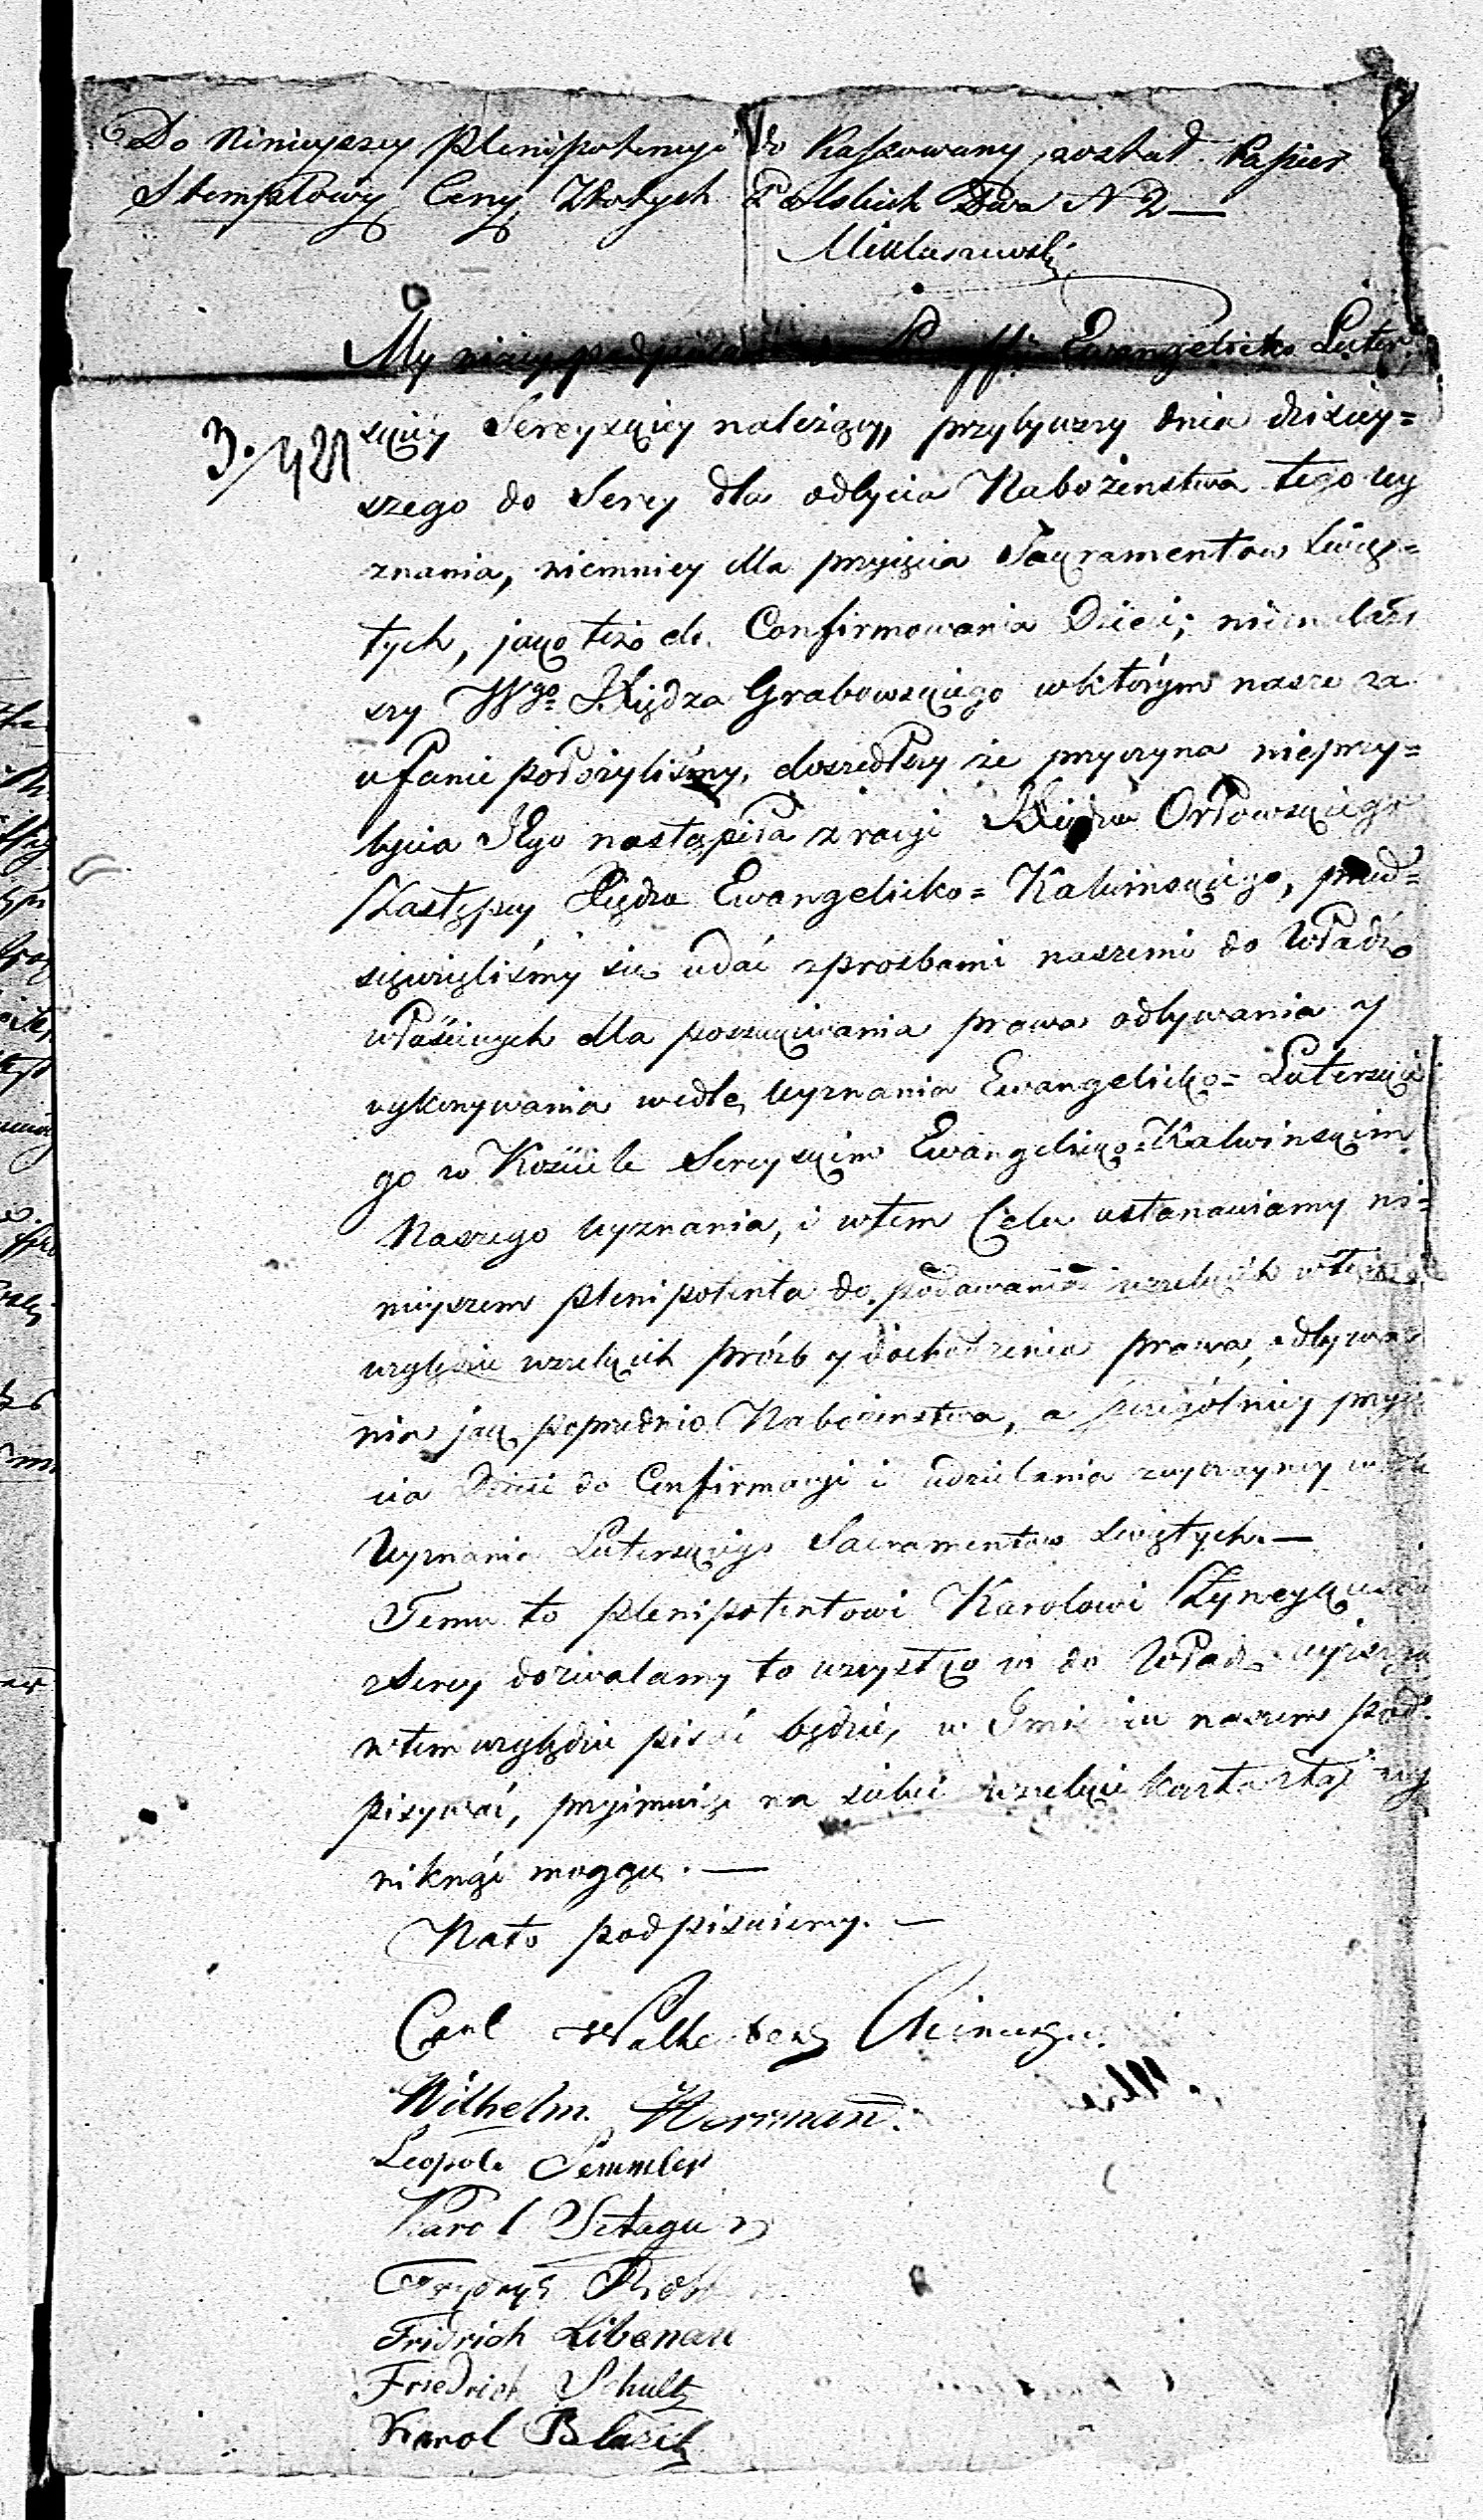 Do Ninieyszey Plenipotencyi do Kassowany został Papier
Stemplowy Ceny Złotych Polskich Dwa N 2 —
Miklaszewski
My niżey podpisani Paraffii Ewangelicko Luter
3./421
skiéy Sereyskiey należący, przybywszy dnia dzisiey=
szego do Serey dla odbycia Nabożenstwa tego wy
znania, niemniey dla przyięcia Sakramentow Swię=
tych, jako też do Confirmowania Dzieci; nieznalazł
szy Wgo Xiędza Grabowskiego w którym nasze za
ufanie położyliśmy, doszedłszy że przyczyna nieprzy=
bycia Jego nastąpiła z racyi Xiędza Orłowskiego
Zastępcy Xiędza Ewangelicko= Kalwinskiego, przed=
sięwzięliśmy się udać z prosbami naszemi do Władz
właściwych dla poszukiwania prawa odbywania y
wykonywania wedle Wyznania Ewangelicko= Luterskie
go w Kościele Sereyskim Ewangelicko=Kalwinskim
Naszego Wyznania, i w tem Celu ustanawiamy ni=
nieyszem plenipotenta do podawania wszelkich w tem
względzie wszelkich próźb y dochodzenia prawa, odbywa
nia jak poprzednio Nabożenstwa, a szczególniey przyię
cia Dzieci do Confirmacyi i udzielania
Wyznania Luterskiego Sacramentow Swiętych. —
Temu to plenipotentowi Karolowi
z Serey dozwalamy to wszystko co do Władz wyższych
w tem względzie pisać będzie, w Imieniu naszem pod=
pisywać, przyimuiąc na siebie wszelkie koszta ztąd wy
niknąć mogące. —
Nato podpisuiemy. —
Carl
Wilhelm. Herrmann.
Leopold Semmler
Karol
Frydryk
Fridrich Libenau
Friedrich Schultz
Karol